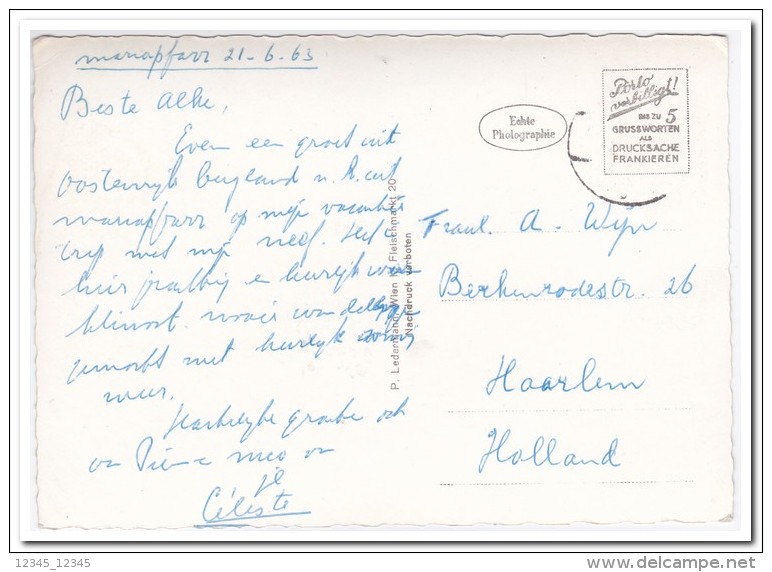 mariapfarr 21-6-63
Beste Alke,
Even een groet uit
oostenrijk bergland n.l. uit
mariapfarr op mijn vacantie
trip met mijn neef. Het is
hier prachtig en heerlijk
mooie
gemaakt met heerlijk
weer.
Hartelijke groeten ook
van
je
Céleste
Echte
Photographie
Porto
verbilligt!
BIS ZU 5
GRUSSWORTEN
ALS
DRUCKSACHE
FRANKIEREN
P. Ledermann, Wien I, Fleischmarkt 20
Nachdruck verboten
A. Wijn
Berkenrodestr. 26
Haarlem
Holland
12345_12345
delcampe.net